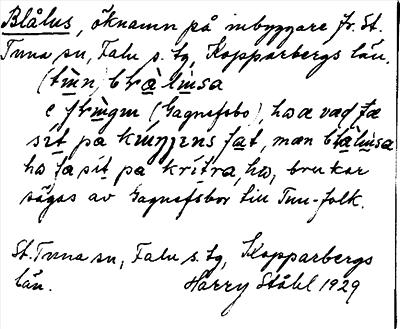 Blålus, öknamn på inbyggare fr. St.
Tuna sn, Falu s. tg, Kopparbergs län.
(tùn) blạ̀lùsa
e frùgur (Gagnefsbo), ha a vạḍ fæ
sít på kuŋŋens fat, mæn blàlùsa
ha fa sít på krítra, ha, brukar
sägas av Gagnefsbor till Tun-folk.
St. Tuna sn, Falu s. tg, Kopparbergs
län. Harry Ståhl 1929